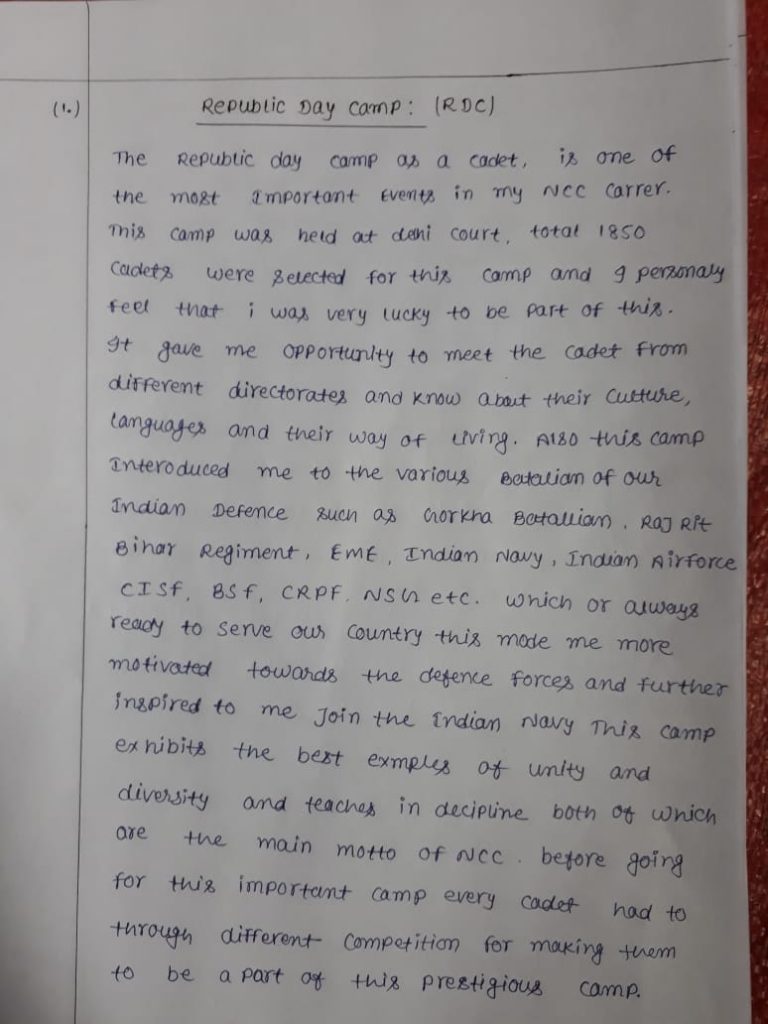 (1.) Republic Day Camp: (RDC)
The Republic day camp as a cadet, is one of
the most important events in my NCC carrer.
This camp was held at delhi court, total 1850
Cadets were selected for this camp and I personaly
feel that i was very lucky to be part of this.
It gave me opportunity to meet the cadet from
different directorates and know about their culture,
languages and their way of living. Also this camp
Interoduced me to the various Batalian of our
Indian Defence such as Gorkha Batallian, Raj Rif
Bihar Regiment, EME, Indian Navy, Indian Airforce
CISF, BSF, CRPF. NSG etc. which or always
ready to serve our country this made me more
motivated towards the defence forces and further
inspired to me Join the Indian Navy This camp
exhibits the best exmples of unity and
diversity and teaches in decipline both of which
are the main motto of NCC. before going
for this important camp every cadet had to
through different competition for making them
to be a part of this prestigious camp.